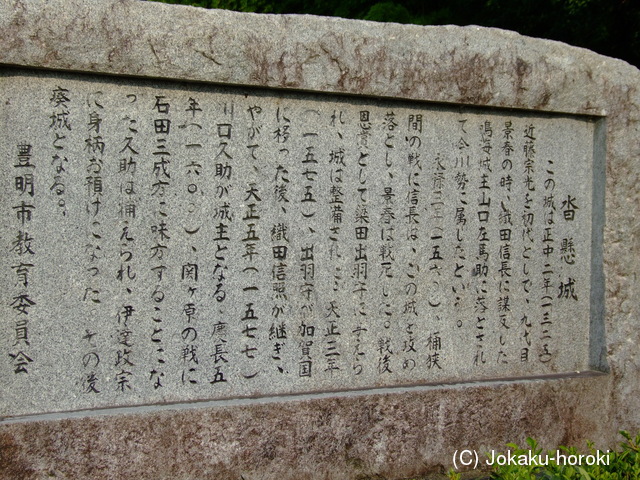 沓懸城
この城は正中二年(一三二五)
近藤宗光を初代として、九代目
景春の時、織田信長に謀反した
鳴海城主山口左馬助に落とされ
て今川勢に属したという。
永禄三年(一五六〇)、桶狭
間の戦に信長は、この城を攻め
落とし、景春は戦死した。戦後
恩賞として簗田出羽守に与えら
れ、城は整備され、天正三年
(一五七五)、出羽守が加賀国
に移った後、織田信照が継ぎ、
やがて、天正五年(一五七七)
川口久助が城主となる。慶長五
年(一六〇〇)、関ヶ原の戦に
石田三成方に味方することにな
った久助は捕えられ、伊達政宗
に身柄お預けになった その後
廃城となる。
豊明市教育委員会
(C) Jokaku-horoki